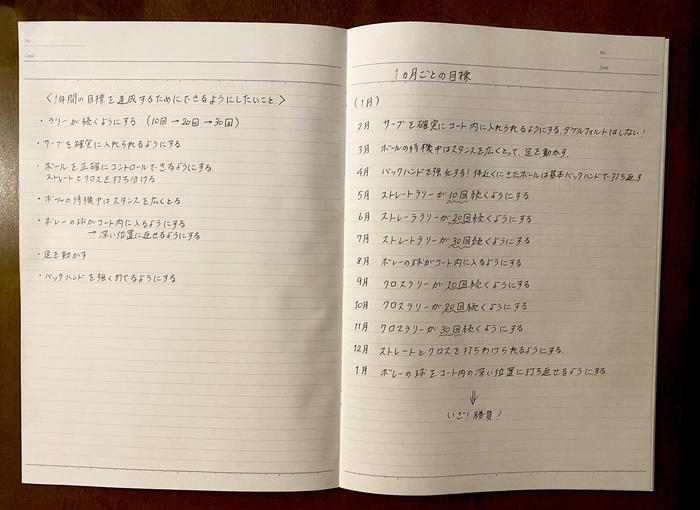 No.
Date
〈1年間の目標を達成するためにできるようにしたいこと〉
・ラリーが続くようにする（10回→20回→30回）
・サーブを確実に入れられるようにする
・ボールを正確にコントロールできるようにする
ストレートとクロスを打ち分ける
・ボールの待機中はスタンスを広くとる
・ボレーの球がコート内に入るようにする
→深い位置に返せるようにする
・足を動かす
・バックハンドを強く打てるようにする
No.
Date
1ヵ月ごとの目標
(1月)
2月 サーブを確実にコート内に入れられるようにする。ダブルフォルトはしない!
3月 ボールの待機中はスタンスを広くとって、足を動かす。
4月 バックハンドを強化する!体近くにきたボールは基本バックハンドで打ち返す
5月 ストレートラリーが10回続くようにする
6月 ストレーラリーが20回続くようにする
7月 ストレートラリーが30回続くようにする
8月 ボレーの球がコート内に入るようにする
9月 クロスラリーが10回続くようにする
10月 クロスラリーが20回続くようにする
11月 クロスラリーが30回続くようにする
12月 ストレートとクロスを打ちわけられるようにする。
1月 ボレーの球をコート内の深い位置に打ち返せるようにする
⇓
いざ!勝負!